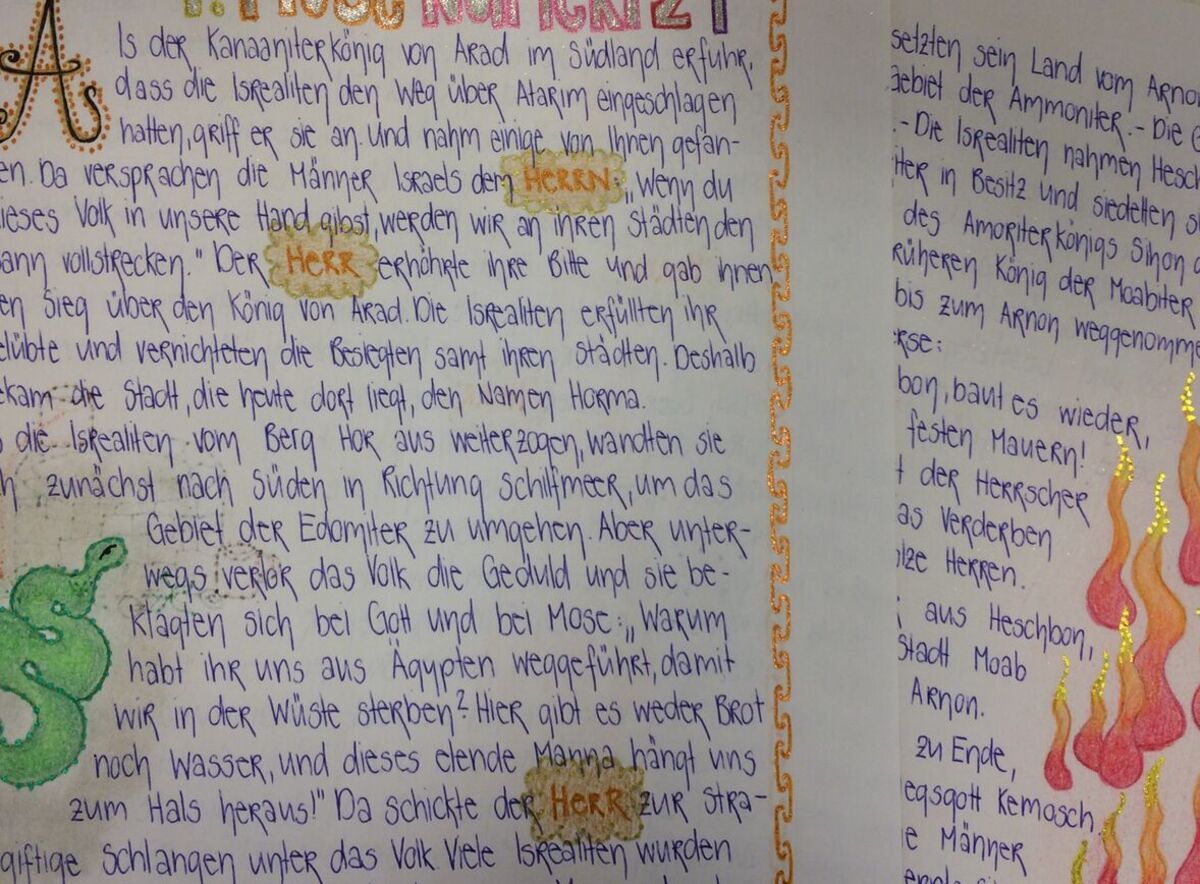 4. Mose Kapitel 21
Als der Kanaaniterkönig von Arad im Südland erfuhr,
dass die Isrealiten den Weg über Atarim eingeschlagen
hatten, griff er sie an. Und nahm einige von Ihnen gefan-
en. Da versprachen die Männer Israels dem HERRN „Wenn du
ieses Volk in unsere Hand gibst, werden wir an ihren Städten den
ann vollstrecken." Der HERR erhöhrte ihre Bitte und gab ihnen
en Sieg über den König von Arad. Die Isrealiten erfüllten ihr
elübte und vernichteten die Besiegten samt ihren Städten. Deshalb
ekam die Stadt, die heute dort liegt, den Namen Horma.
die Isrealiten vom Berg Hor aus weiterzogen, wandten sie
h zunächst nach Süden in Richtung Schilfmeer, um das
Gebiet der Edomiter zu umgehen. Aber unter-
wegs verlor das Volk die Geduld und sie be-
klagten sich bei Gott und bei Mose: „Warum
habt ihr uns aus Ägypten weggeführt, damit
wir in der Wüste sterben? Hier gibt es weder Brot
noch Wasser, und dieses elende Manna hängt uns
zum Hals heraus!" Da schickte der HERR zur Stra-
giftige Schlangen unter das Volk. Viele Isrealiten wurden
setzten sein Land vom Arno
Gebiet der Ammoniter.- Die
.- Die Isrealiten nahmen Hesch
her in Besitz und siedelten s
des Amoriterkönigs Sihon
rüheren König der Moabiter
bis zum Arnon weggenomme
rse:
bon, baut es wieder,
festen Mauern!
t der Herrscher
as Verderben
olze Herren.
aus Heschbon,
Stadt Moab
Arnon.
zu Ende,
egsgott Kemosch.
e Männer